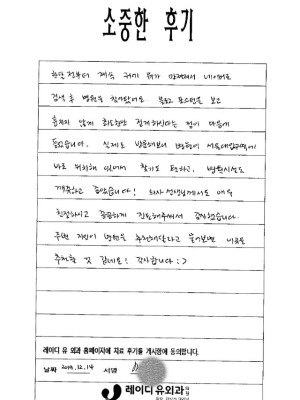 소중한 후기
한달 전부터 계속 귀기 뒤가 만져져서 네이버로
검색 후 병원을 찾아왔어요. 블로그 포스팅을 보고
흉터가 많게 최도한만 집게하신다는 점이 마음에
들었습니다. 실제로 방문해보니 병원이 서울대입구역에
바로 위치해 있어서 찾기도 편하고, 병원시설도
깨끗하고 좋았습니다! 의사 선생님께서도 매우
친절하시고 꼼꼼하게 진료해주셔서 감사했습니다.
주변 지인이 병원을 추천해달라고 물어보면 이곳을
추천할 것 같네요! 감사합니다 :)
레이디 유 외과 홈페이지에 치료 후기를 게시함에 동의합니다.
날짜 2019.12.14 서명
레이디유외과의원